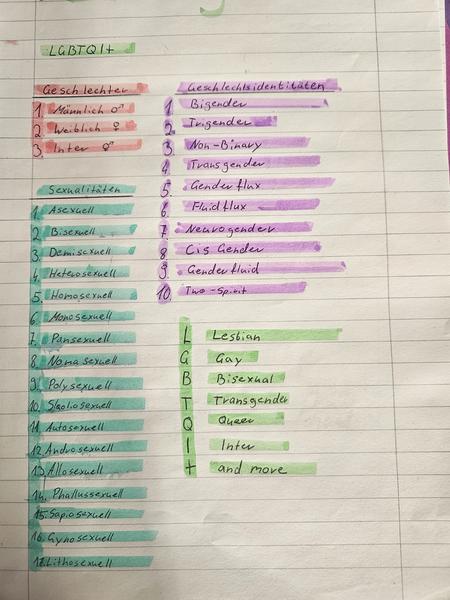 LGBTQI+
Geschlechter
1. Männlich ♂
2. Weiblich ♀
3. Inter ⚥
Sexualitäten
1. Asexuell
2. Bisexuell
3. Demisexuell
4. Heterosexuell
5. Homosexuell
6. Monosexuell
7. Pansexuell
8. Nomasexuell
9. Polysexuell
10. Skoliosexuell
11. Autosexuell
12. Androsexuell
13. Allosexuell
14. Phallussexuell
15. Sapiosexuell
16. Gynosexuell
17. Lithosexuell
Geschlechtsidentitäten
1. Bigender
2. Trigender
3. Non-Binary
4. Transgender
5. Genderflux
6. Fluidflux
7. Neurogender
8. Cis Gender
9. Genderfluid
10. Two-Spirit
L Lesbian
G Gay
B Bisexual
T Transgender
Q Queer
I Inter
+ and more